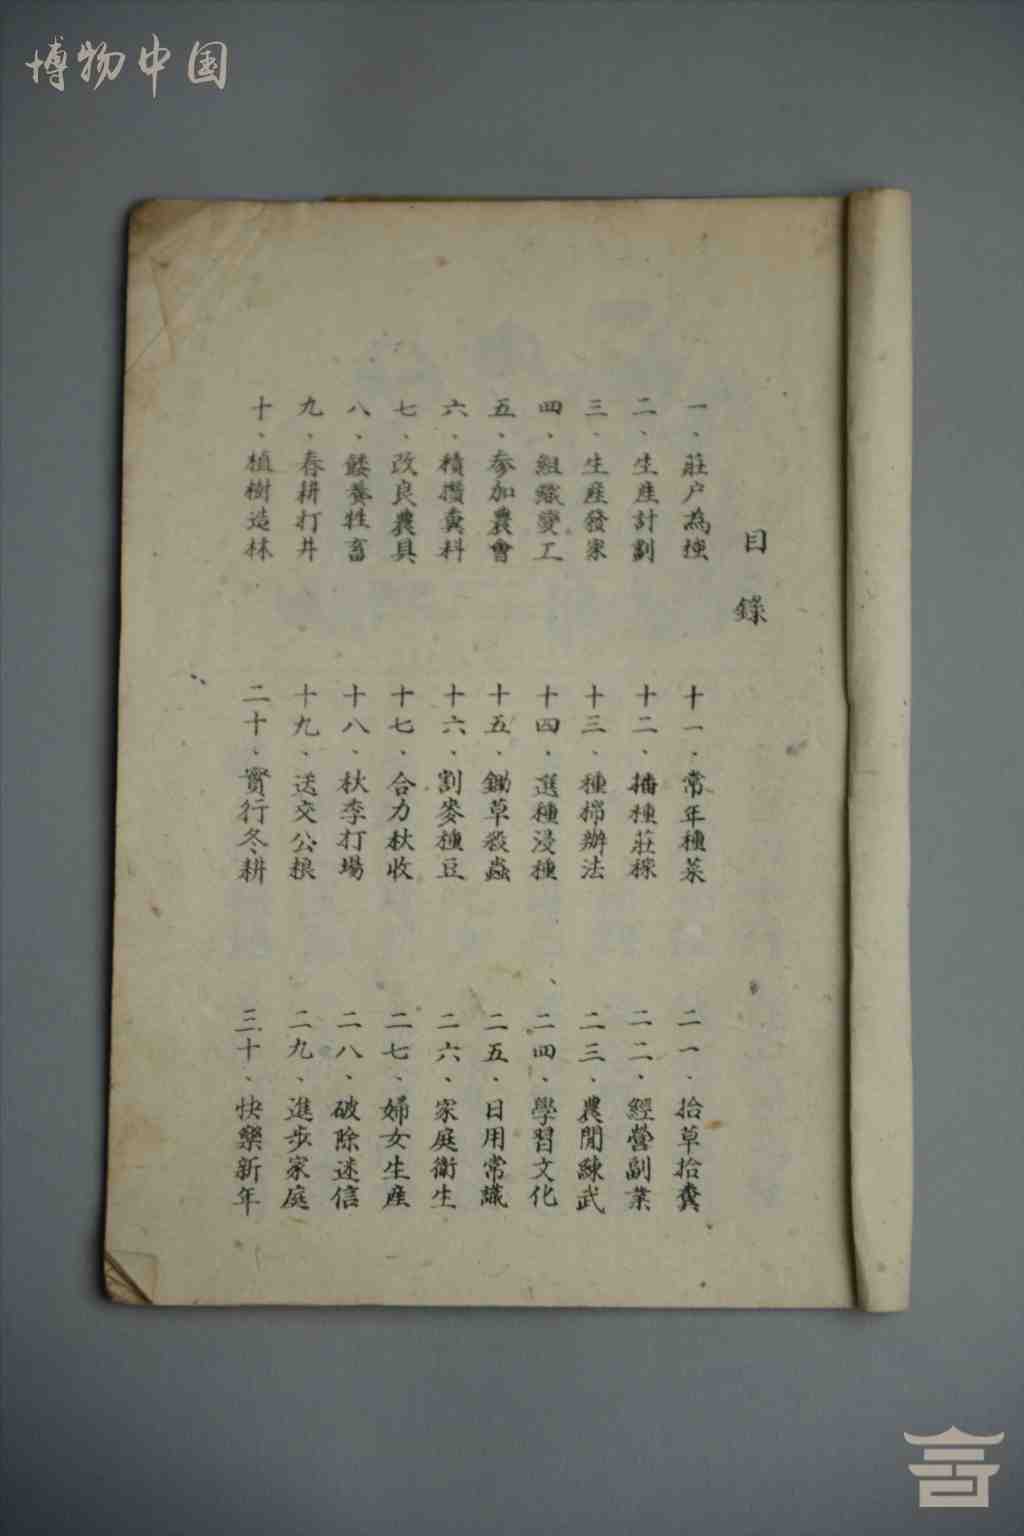 博物中国
目錄
一、莊户為強
二、生產計劃
三、生產發家
四、組織變工
五、参加農會
六、積攢糞料
七、改良農具
八、餵養牲畜
九、春耕打井
十、植樹造林
十一、常年種菜
十二、播種莊稼
十三、種棉辦法
十四、選種浸種
十五、鋤草殺蟲
十六、割麥種豆
十七、合力秋收
十八、秋季打場
十九、送交公粮
二十、實行冬耕
二一、拾草拾糞
二二、經營副業
二三、農閒練武
二四、學習文化
二五、日用常識
二六、家庭衛生
二七、婦女生產
二八、破除迷信
二九、進步家庭
三十、快樂新年